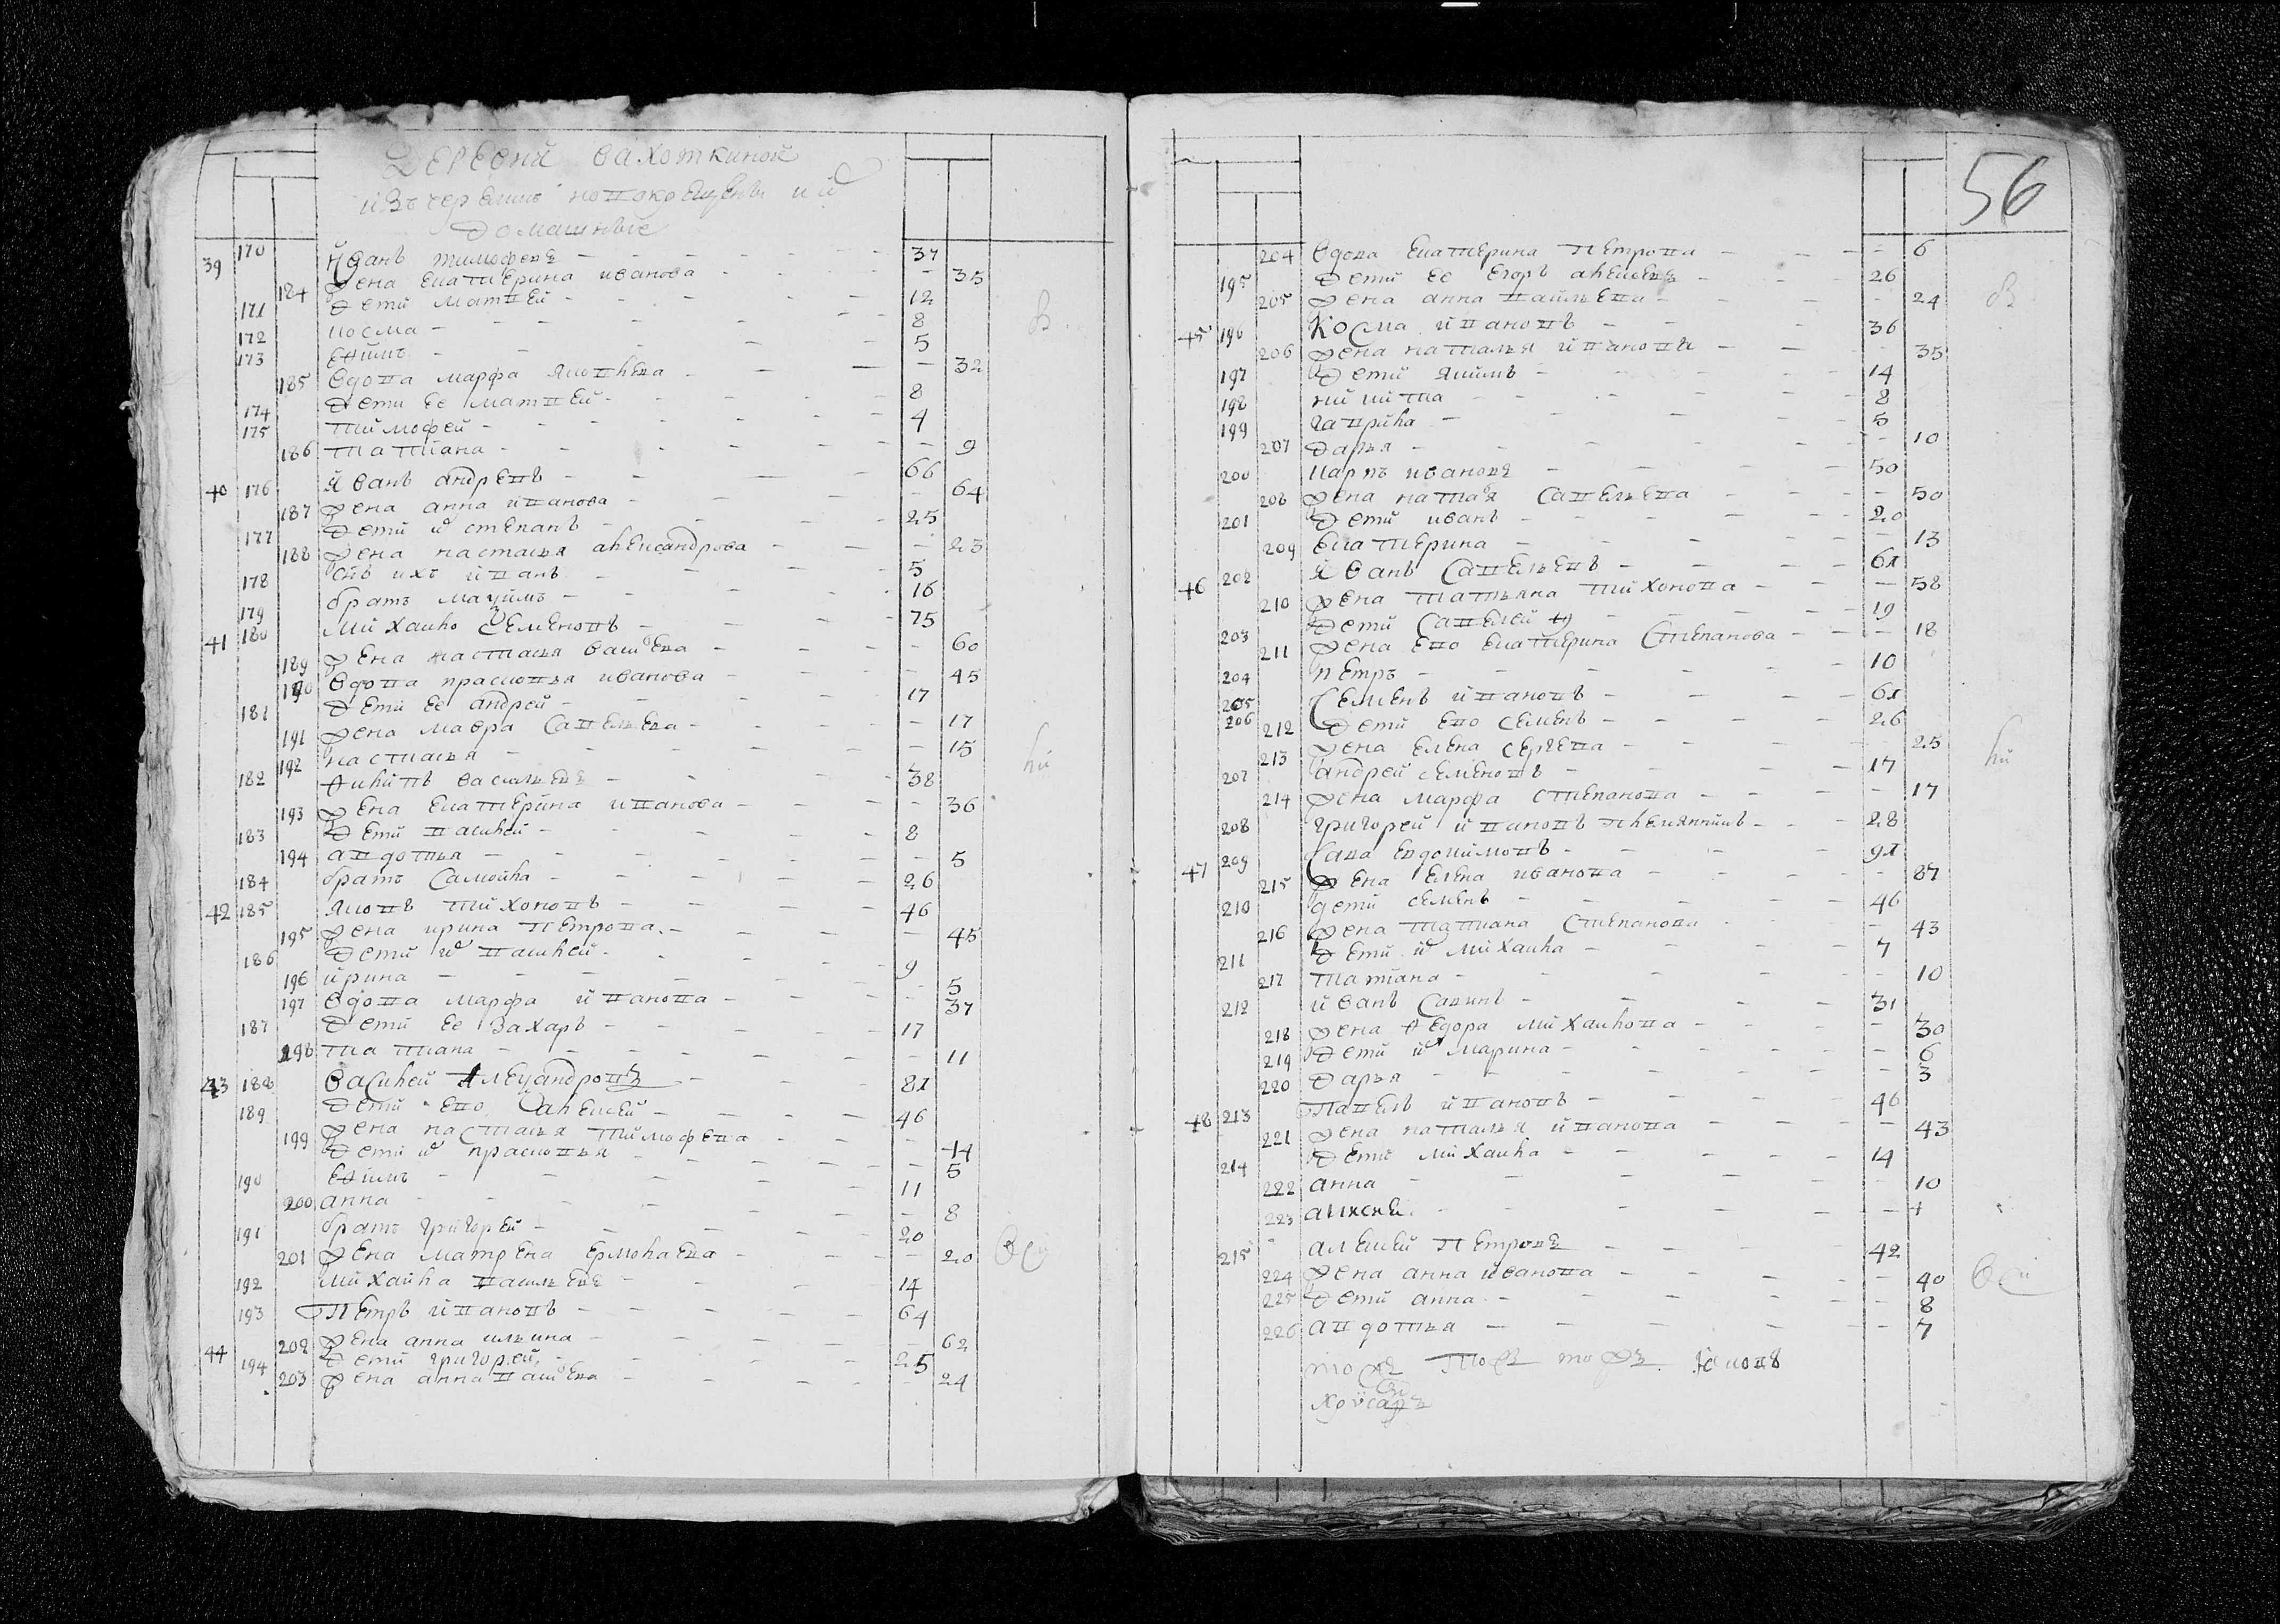 деревни вахоткиной
из черемис новокрещены и ихъ
домашные
39 170 Иванъ тимофеевъ 37
184 жена екатерина иванова 35
171 дети матвей 12
172 косма 8
173 ефимъ 5
185 вдова марфа яковлева 32
174 дети ее матвей 8
175 тимофей 4
186 татиана 9
40 176 Иванъ андреевъ 66
187 жена анна иванова 64
177 дети их степанъ 25
188 жена настасья александрова 23
178 снъ ихъ иванъ 5
179 братъ маѯимъ 16
41 180 михаило семеновъ 75
189 жена настасья васильева 60
190 вдова прасковья иванова 45
181 дети ее андрей 17
191 жена мавра савельева 17
192 настасья 15
182 филипъ васильевъ 38
193 жена екатерина иванова 36
183 дети василей 8
194 авдотья 5
184 братъ самойла 26
42 185 яковъ тихоновъ 46
195 жена ирина петрова 45
186 дети их василей 9
196 ирина 5
197 вдова марфа иванова 37
187 дети ее захаръ 17
198 татиана 11
43 188 василей алеѯандровъ 81
189 дети ево алексей 46
199 жена настасья тимофеева 44
дети их прасковья 5
190 ефимъ 11
200 анна 8
191 братъ григорей 20
201 жена матрена ермолаева 20
192 михаила васильевъ 14
193 петръ ивановъ 64
44 202 жена анна ильина 62
194 дети григорей 25
203 жена анна васильева 24
56
204 вдова екатерина петрова 6
195 дети ее егоръ алексеевъ 26
205 жена анна васильева 24
45 196 косма ивановъ 36
206 жена наталья иванова 35
197 дети якимъ 14
198 никита 8
199 гаврила 5
207 дарья 10
200 карпъ ивановъ 50
208 жена наталья савельева 50
201 дети иванъ 20
209 екатерина 13
46 202 Иванъ савельевъ 61
210 жена татьяна тихонова 58
203 дети савелей 19
211 жена ево екатерина степанова 18
204 петръ 10
205 семенъ ивановъ 61
206 212 дети ево семенъ 26
213 жена елена сергева 25
207 андрей семеновъ 17
214 жена марфа степанова 17
208 григорей ивановъ племянникъ 28
47 209 сава евдокимовъ 91
215 жена елена иванова 87
210 дети семенъ 46
216 жена татиана степанова 43
211 дети их михаила 7
217 татиана 10
212 иванъ савинъ 31
218 жена федора михаилова 30
219 дети их марина 6
220 дарья 3
48 213 павелъ ивановъ 46
221 жена наталья иванова 43
214 дети михаила 14
222 анна 10
223 4
215 алексей петровъ 42
224 жена анна иванова 40
225 дети анна 8
226 авдотья 7